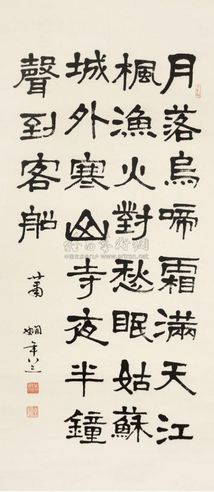 月落烏啼霜滿天江
楓漁火對愁眠姑蘇
城外寒山寺夜半鐘
聲到客船
蕭嫻年八三